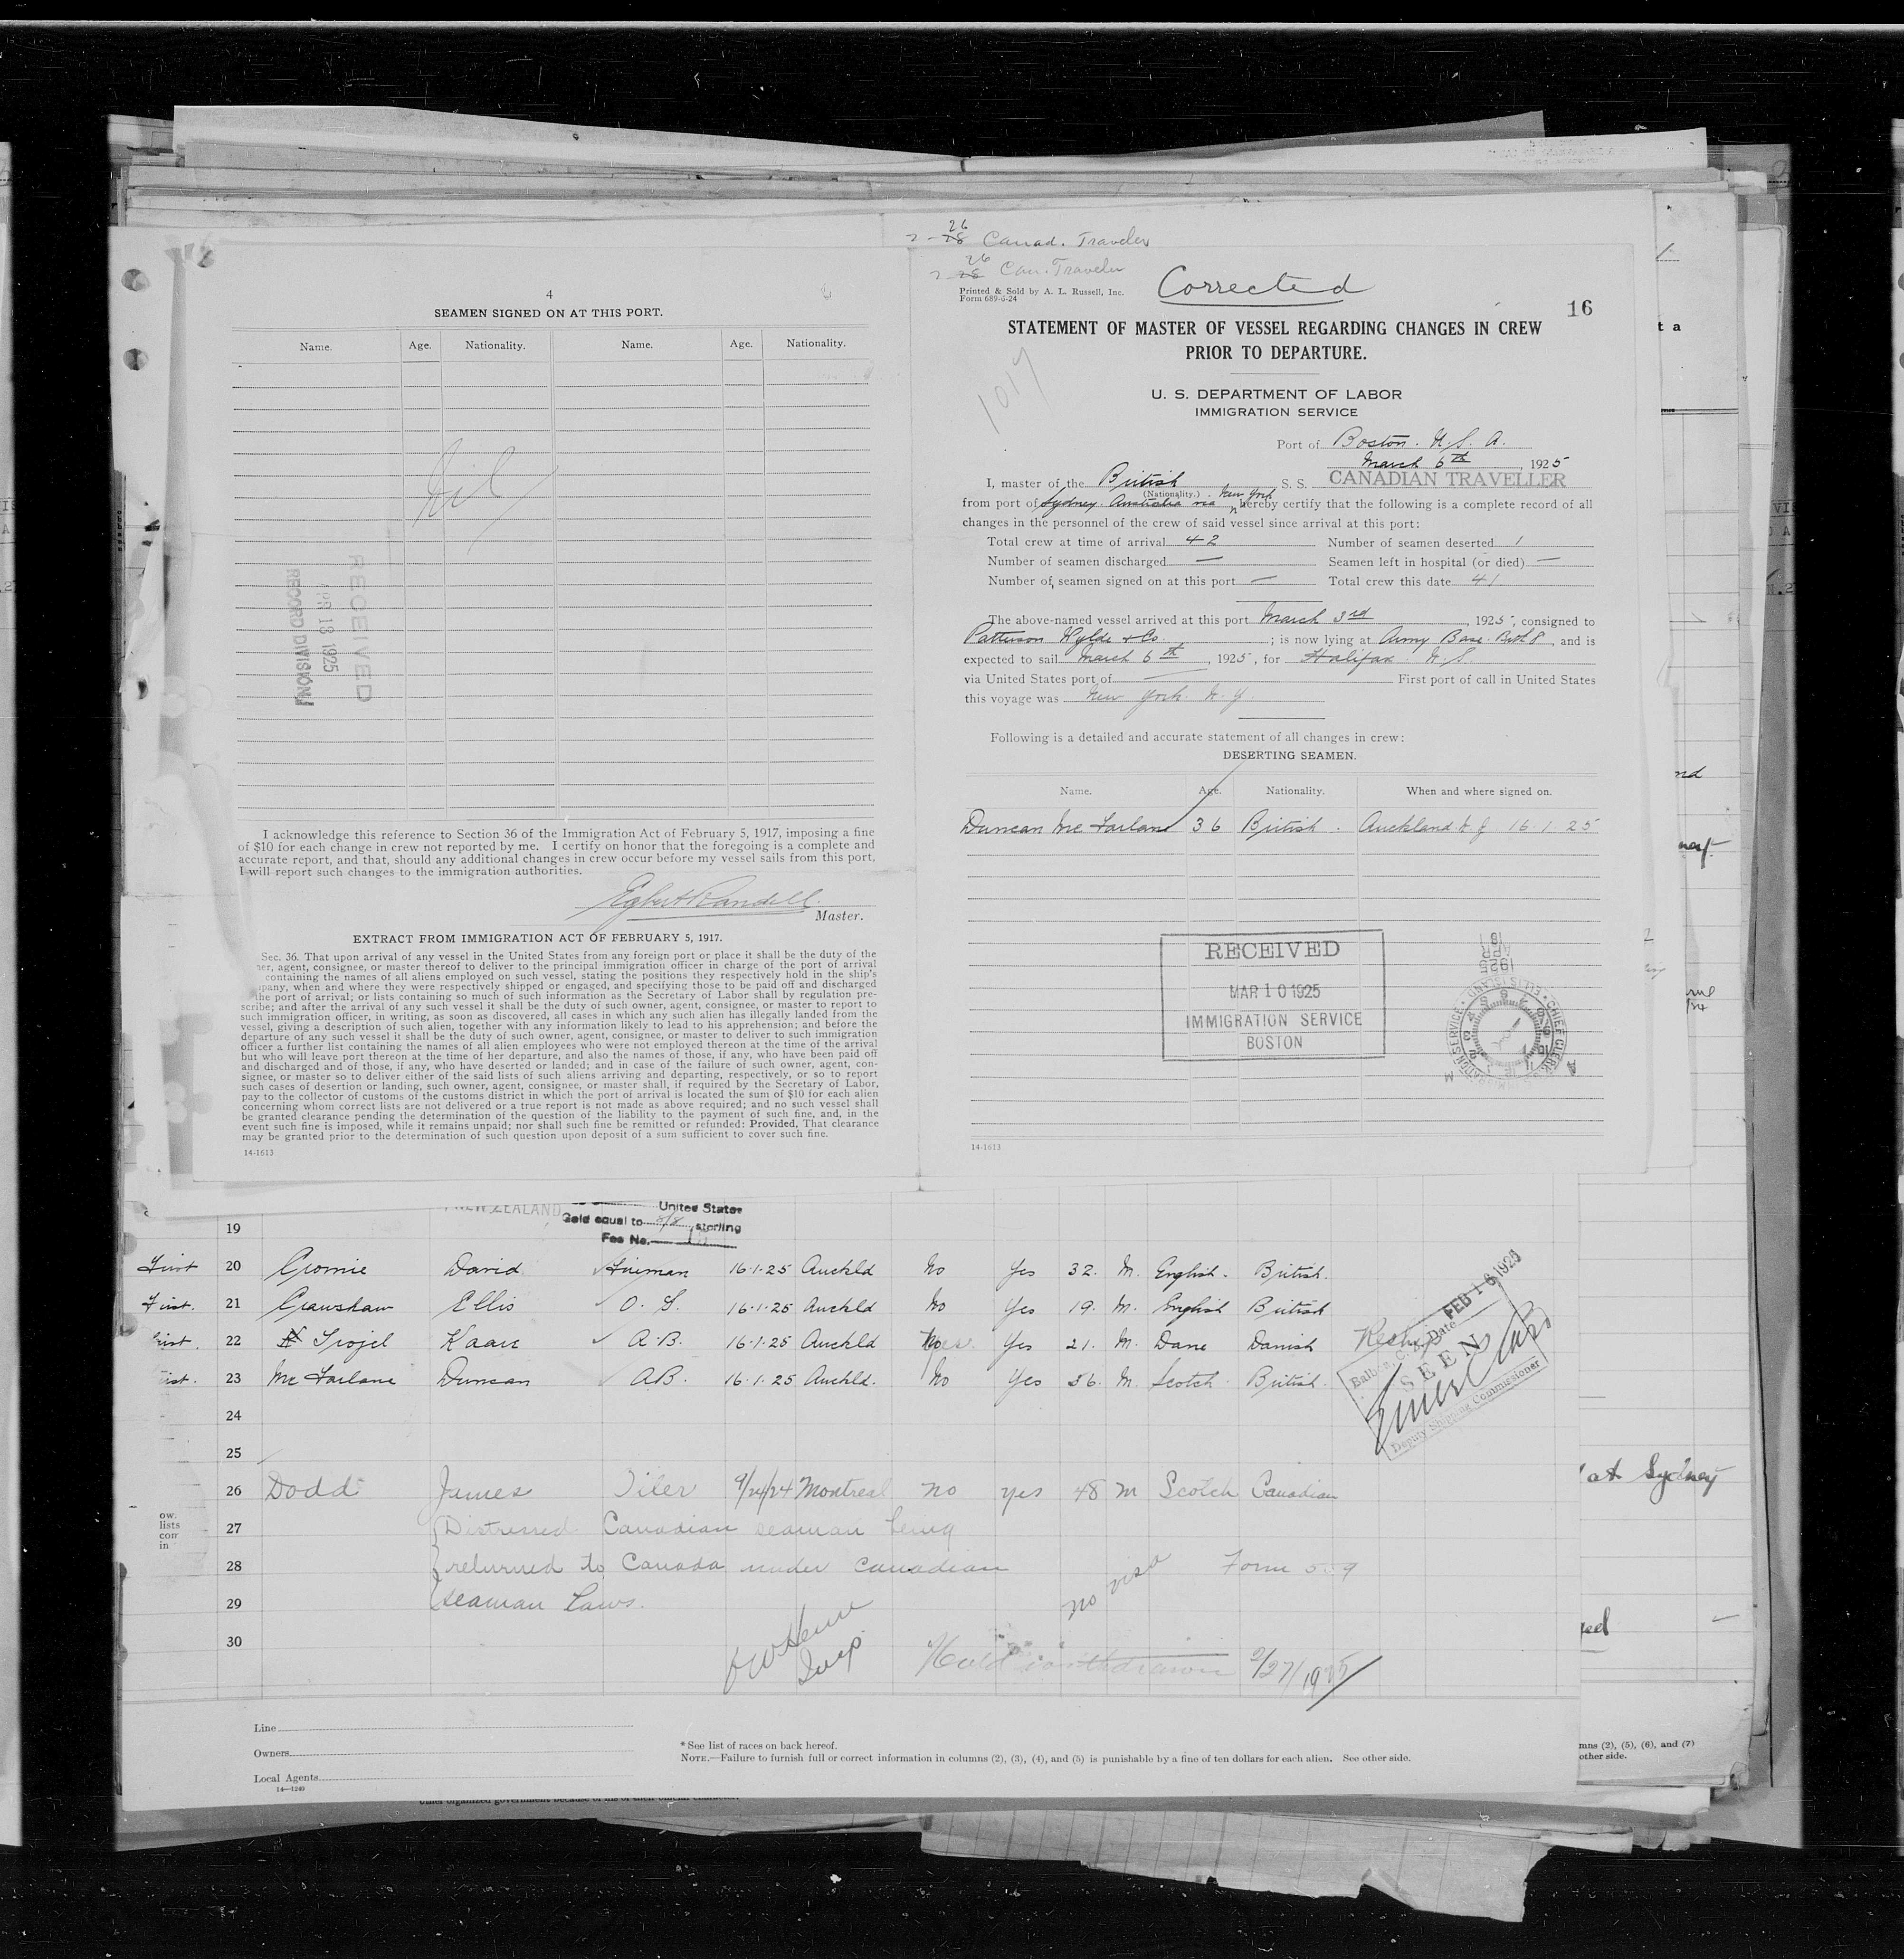 2-26 28 Canad. Traveler
2-26 28 Can. Traveler
Printed & Sold by A. L. Russell, Inc.
Form 689-6-24
Corrected
16
STATEMENT OF MASTER OF VESSEL REGARDING CHANGES IN CREW
PRIOR TO DEPARTURE.
1017
U. S. DEPARTMENT OF LABOR
IMMIGRATION SERVICE
Port of Boston. U.S.A.
March 6th, 1925
I, master of the British S. S. CANADIAN TRAVELLER
(Nationality.) New York
from port of Sydney. Australia via hereby certify that the following is a complete record of all
changes in the personnel of the crew of said vessel since arrival at this port:
Total crew at time of arrival 42 Number of seamen deserted 1
Number of seamen discharged — Seamen left in hospital (or died) —
Number of seamen signed on at this port — Total crew this date 41
The above-named vessel arrived at this port March 3rd, 1925, consigned to
Patterson Wylde & Co. ; is now lying at Army Base. Brth 8, and is
expected to sail March 6th, 1925, for Halifax. N.S.
via United States port of — First port of call in United States
this voyage was New York. N.Y.
Following is a detailed and accurate statement of all changes in crew:
DESERTING SEAMEN.
Name. Age. Nationality. When and where signed on.
Duncan Mc Farlane 36 British. Auckland N.Z. 16.1.25
RECEIVED
MAR 10 1925
IMMIGRATION SERVICE
BOSTON
1925
APR
CHIEF CLERK
ELLIS ISLAND
14-1613
4
SEAMEN SIGNED ON AT THIS PORT.
Name. Age. Nationality. Name. Age. Nationality.
Nil
RECEIVED
APR 13 1925
RECORD DIVISION
I acknowledge this reference to Section 36 of the Immigration Act of February 5, 1917, imposing a fine
of $10 for each change in crew not reported by me. I certify on honor that the foregoing is a complete and
accurate report, and that, should any additional changes in crew occur before my vessel sails from this port,
I will report such changes to the immigration authorities.
Egbert Randell.
Master.
EXTRACT FROM IMMIGRATION ACT OF FEBRUARY 5, 1917.
Sec. 36. That upon arrival of any vessel in the United States from any foreign port or place it shall be the duty of the
ner, agent, consignee, or master thereof to deliver to the principal immigration officer in charge of the port of arrival
containing the names of all aliens employed on such vessel, stating the positions they respectively hold in the ship's
pany, when and where they were respectively shipped or engaged, and specifying those to be paid off and discharged
the port of arrival; or lists containing so much of such information as the Secretary of Labor shall by regulation pre-
scribe; and after the arrival of any such vessel it shall be the duty of such owner, agent, consignee, or master to report to
such immigration officer, in writing, as soon as discovered, all cases in which any such alien has illegally landed from the
vessel, giving a description of such alien, together with any information likely to lead to his apprehension; and before the
departure of any such vessel it shall be the duty of such owner, agent, consignee, or master to deliver to such immigration
officer a further list containing the names of all alien employees who were not employed thereon at the time of the arrival
but who will leave port thereon at the time of her departure, and also the names of those, if any, who have been paid off
and discharged and of those, if any, who have deserted or landed; and in case of the failure of such owner, agent, con-
signee, or master so to deliver either of the said lists of such aliens arriving and departing, respectively, or so to report
such cases of desertion or landing, such owner, agent, consignee, or master shall, if required by the Secretary of Labor,
pay to the collector of customs of the customs district in which the port of arrival is located the sum of $10 for each alien
concerning whom correct lists are not delivered or a true report is not made as above required; and no such vessel shall
be granted clearance pending the determination of the question of the liability to the payment of such fine, and, in the
event such fine is imposed, while it remains unpaid; nor shall such fine be remitted or refunded: Provided, That clearance
may be granted prior to the determination of such question upon deposit of a sum sufficient to cover such fine.
14-1613
NEW ZEALAND
United States
Gold equal to sterling
Fee No.
19
First 20 Cromie David Fireman 16.1.25 Auckld No Yes 32. M. English. British.
First. 21 Crawshaw Ellis O. S. 16.1.25 Auckld No Yes 19. M. English British
irst. 22 Trojel Kaare A.B. 16.1.25 Auckld Yes. Yes 21. M. Dane Danish
ist. 23 Mc Farlane Duncan A.B. 16.1.25 Auckld. No Yes 36. M. Scotch. British.
FEB 16 1925
Balboa, C. Z. Date
SEEN
Deputy Shipping Commissioner
24
25
26 Dodd James Tiler 9/24/24 Montreal no yes 48 M Scotch Canadian
27 Distressed Canadian seaman being
28 returned to Canada under Canadian
29 seaman Laws.
30
no visa
Form 559
Insp
Hold withdrawn 2/27/1925
Line
Owners
Local Agents
14—1240
* See list of races on back hereof.
NOTE.—Failure to furnish full or correct information in columns (2), (3), (4), and (5) is punishable by a fine of ten dollars for each alien. See other side.
at Sydney
mns (2), (5), (6), and (7)
other side.